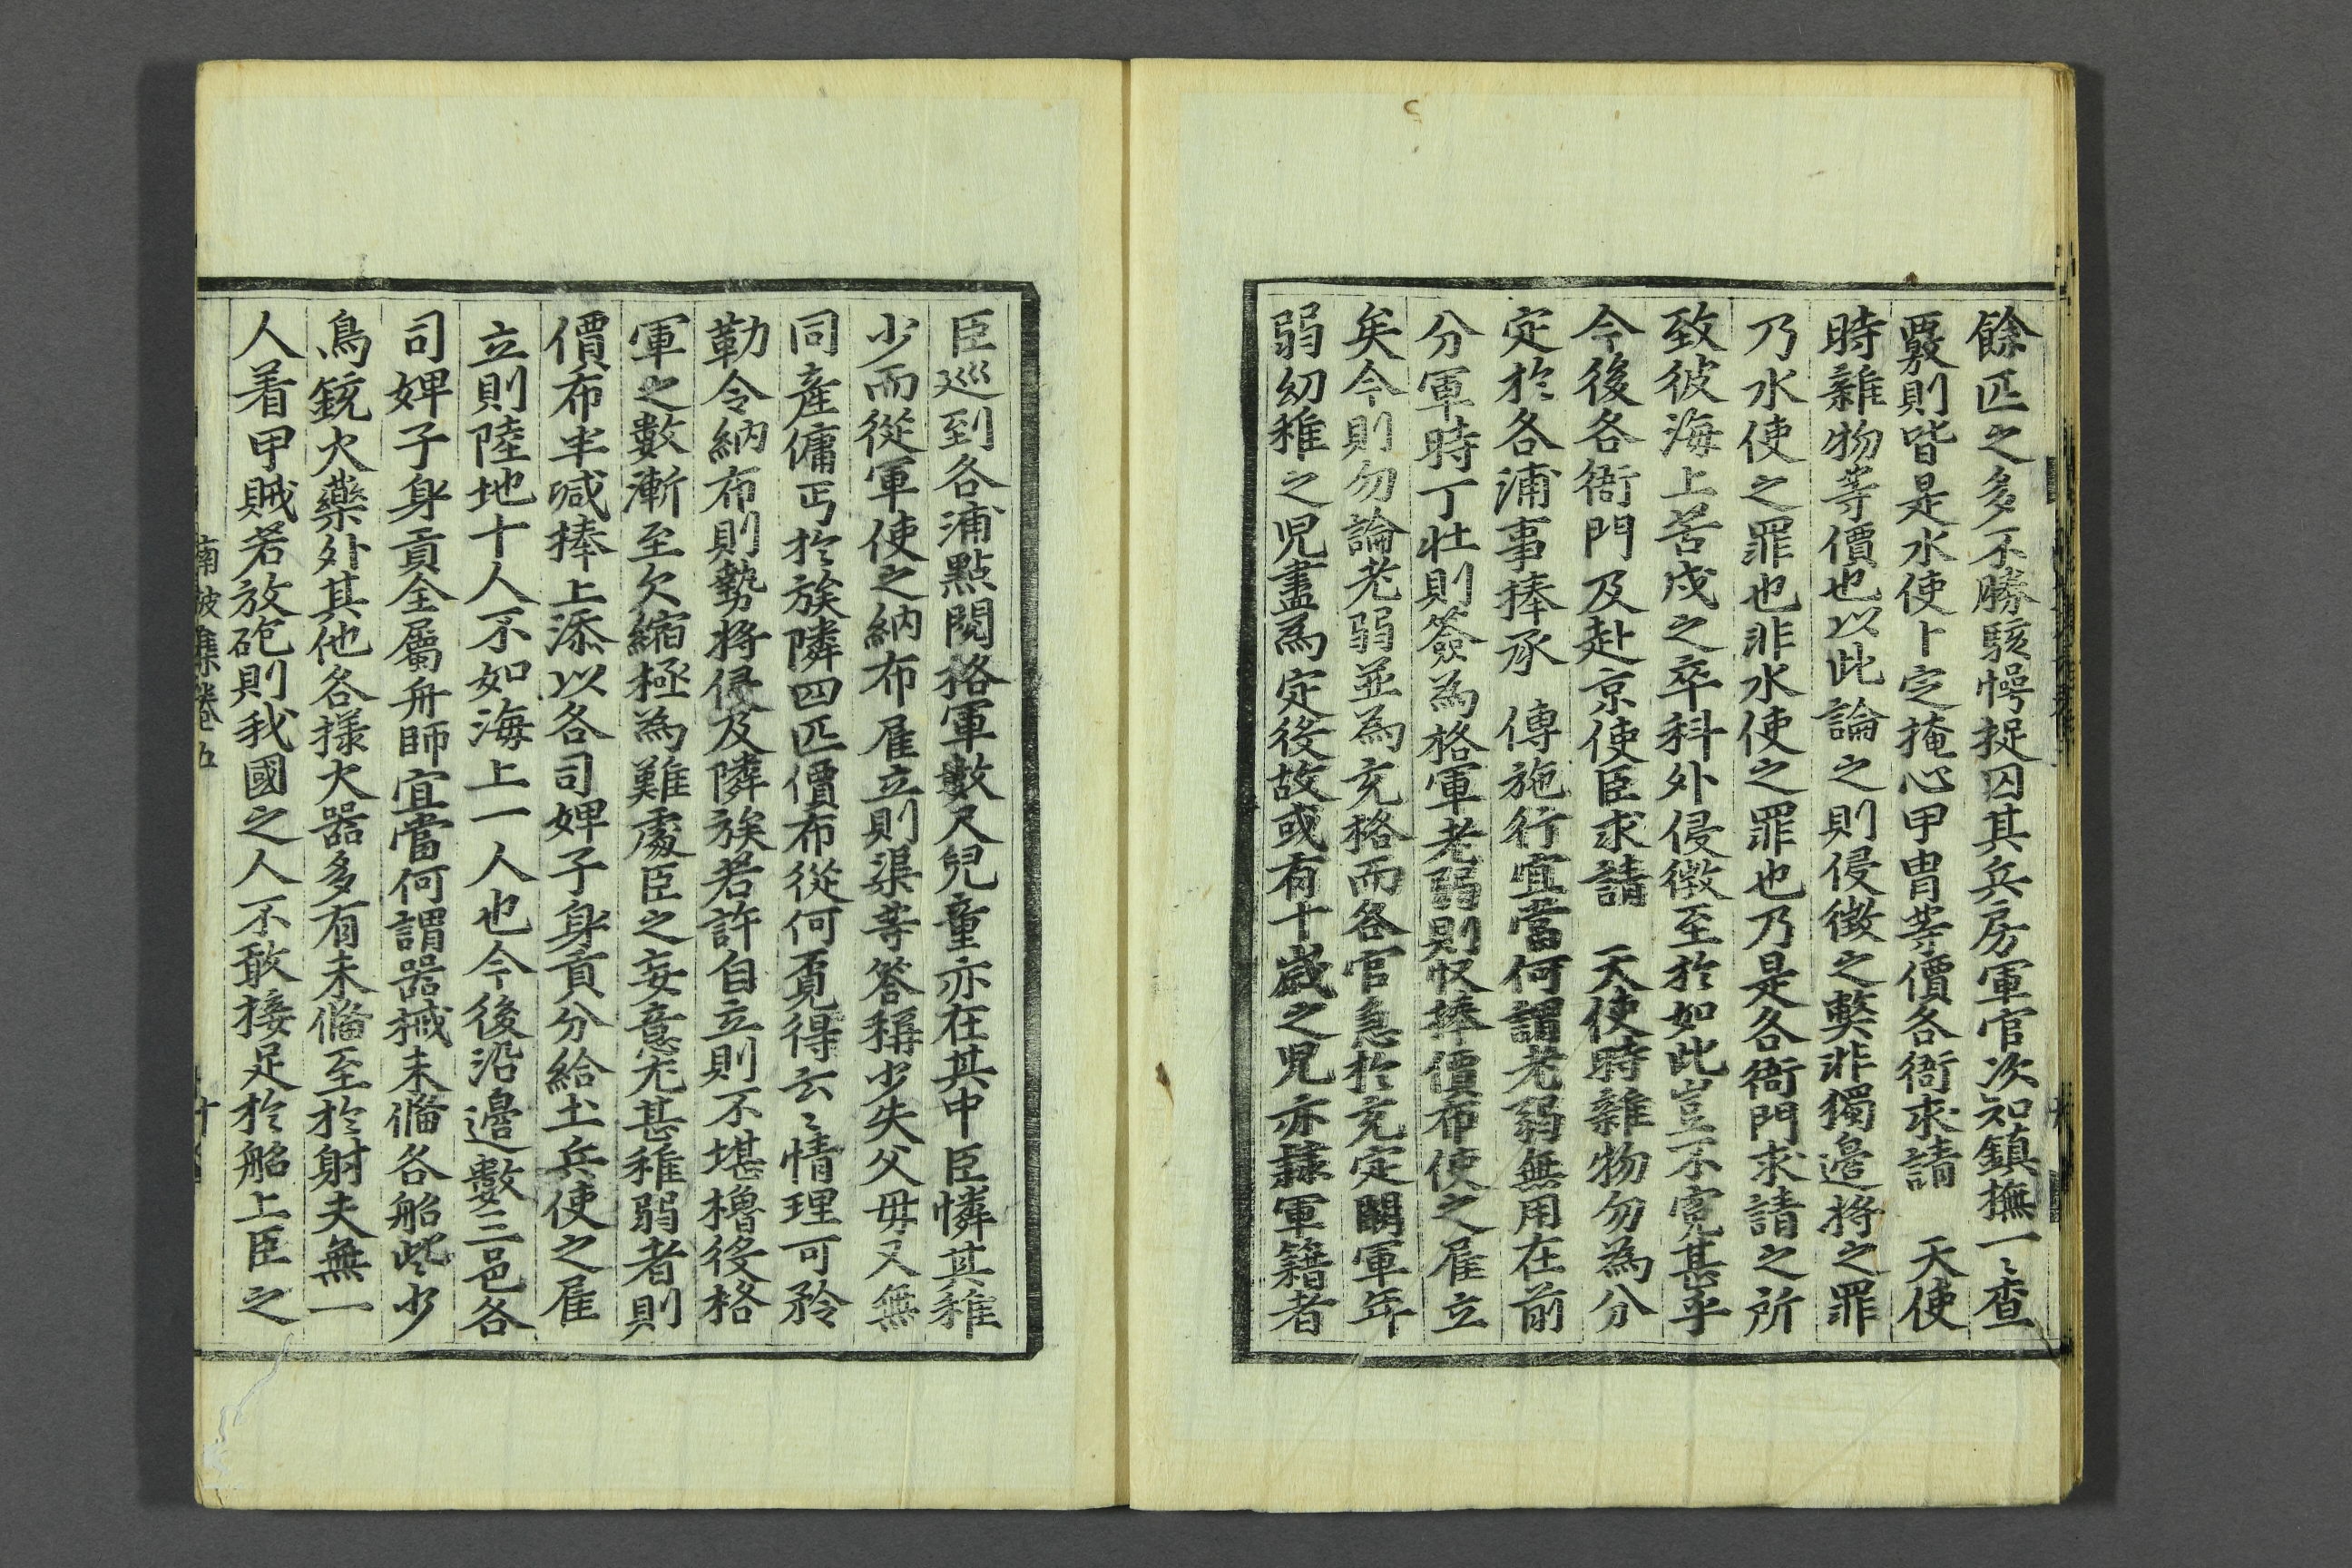 餘匹之多不勝駭愕捉囚其兵房軍官次知鎮撫一〻查
覈則皆是水使卜定掩心甲冑等價各衙求請　天使
時雜物等價也以此論之則侵徵之弊非獨邊將之罪
乃水使之罪也非水使之罪也乃是各衙門求請之所
致彼海上苦戍之卒科外侵徵至於如此豈不寃甚乎
今後各衙門及赴京使臣求請　天使時雜物勿為分
定於各浦事捧承　傳施行宜當何謂老弱無用在前
分軍時丁壯則簽為格軍老弱則收捧價布使之雇立
矣今則勿論老弱並為充格而各官急於充定闕軍年
弱幼稚之児盡為定役故或有十歲之児亦隷軍籍者
臣巡到各浦點閱格軍數尺兒童亦在其中臣憐其稚
少而從軍使之納布雇立則渠等答稱少失父母又無
同產傭丐於族隣四匹價布從何覓得云〻情理可矜
勒令納布則勢將侵及隣族若許自立則不堪櫓役格
軍之數漸至欠縮極為難處臣之妄意尤甚稚弱者則
價布半減捧上添以各司婢子身貢分給土兵使之雇
立則陸地十人不如海上一人也今後沿邊數三邑各
司婢子身貢全屬舟師宜當何謂器械未備各船些少
鳥銃火藥外其他各㨾大器多有未備至於射夫無一
人着甲賊若放砲則我國之人不敢接足於船上臣之
南坡集卷五　十